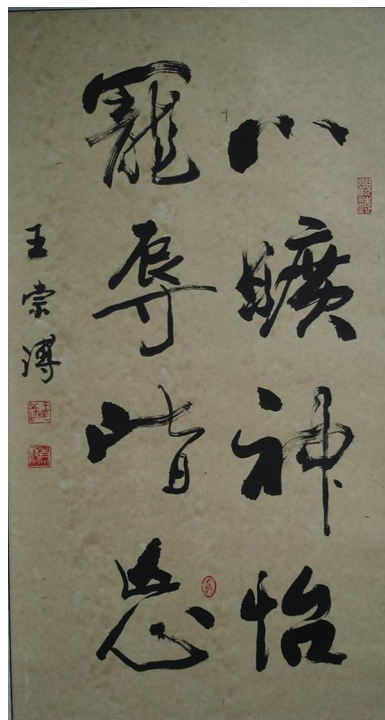 心曠神怡
寵辱皆忘
王崇溥